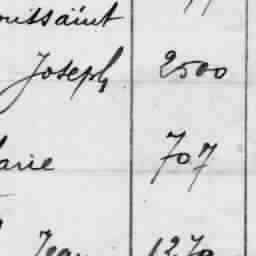 oussaint
Joseph 2500
arie 707
Jean 1270